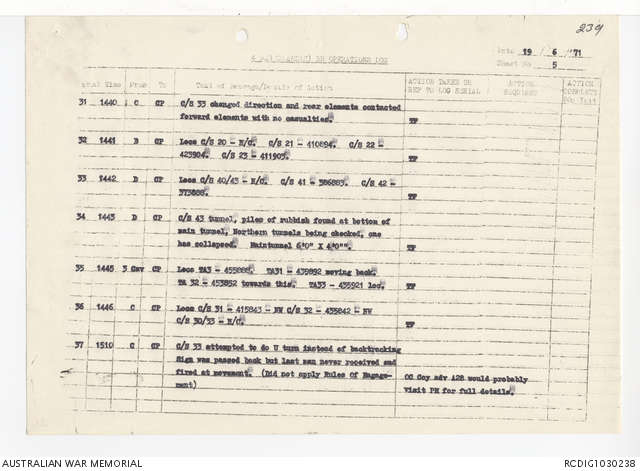 239
Date 19 / 6 /71
Sheet No 5
OPERATIONS LOG
Serial Time From To Text of Message/Details of Action ACTION TAKEN OR REF TO LOG SERIAL ACTION REQUIRED ACTION COMPLETE
31 1440 C CP C/S 33 changed direction and rear elements contacted
forward elements with no casualties. TP
32 1441 B CP Locs C/S 20 - N/C. C/S 21 - 410894. C/S 22 -
423904. C/S 23 - 411903. TP
33 1442 D CP Locs C/S 40/43 - N/C. C/S 41 - 386883. C/S 42 -
373888. TP
34 1443 D CP C/S 43 tunnel, piles of rubbish found at bottom of
main tunnel, Northern tunnels being checked, one
has collapsed. Maintunnel 6'0" X 4'0"". TP
35 1445 3 Cav CP Locs TA3 - 455888. TA31 - 439892 moving back.
TA 32 - 453892 towards this. TA33 - 435921 loc. TP
36 1446 C CP Locs C/S 31 - 415843 - NW C/S 32 - 435842 - NW
C/S 30/33 - N/C. TP
37 1510 C CP C/S 33 attempted to do U turn instead of backtracking
Sign was passed back but last man never received and
fired at movement. (Did not apply Rules Of Engage-
ment) OC Coy adv A2B would probably
visit PH for full details.
AUSTRALIAN WAR MEMORIAL RCDIG1030238